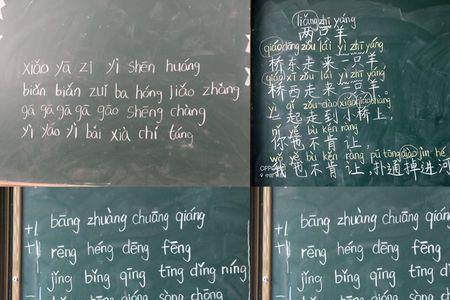 xiǎo yā zǐ yì shēn huáng
biǎn biǎn zuǐ ba hóng jiǎo zhǎng
gā gā gā gā gāo shēng chàng
yì yáo yì bǎi xià chí táng
liǎng zhī yáng
两只羊
qiáo dōng zǒu lái yì zhī yáng
桥东走来一只羊,
qiáo xī zǒu lái yì zhī yáng
桥西走来一只羊,
yì qǐ zǒu dào xiǎo qiáo shàng
一起走到小桥上,
nǐ yě bù kěn ràng
你也不肯让,
wǒ yě bù kěn ràng pū tōng diào jìn hé
我也不肯让,扑通掉进河
+1 bāng zhuàng chuāng qiáng
+1 rēng héng dēng fēng
jǐng bǐng qīng tīng dǐng níng
bāng zhuàng chuāng qiáng
+1 rēng héng dēng fēng
jǐng bǐng qīng tīng dǐng